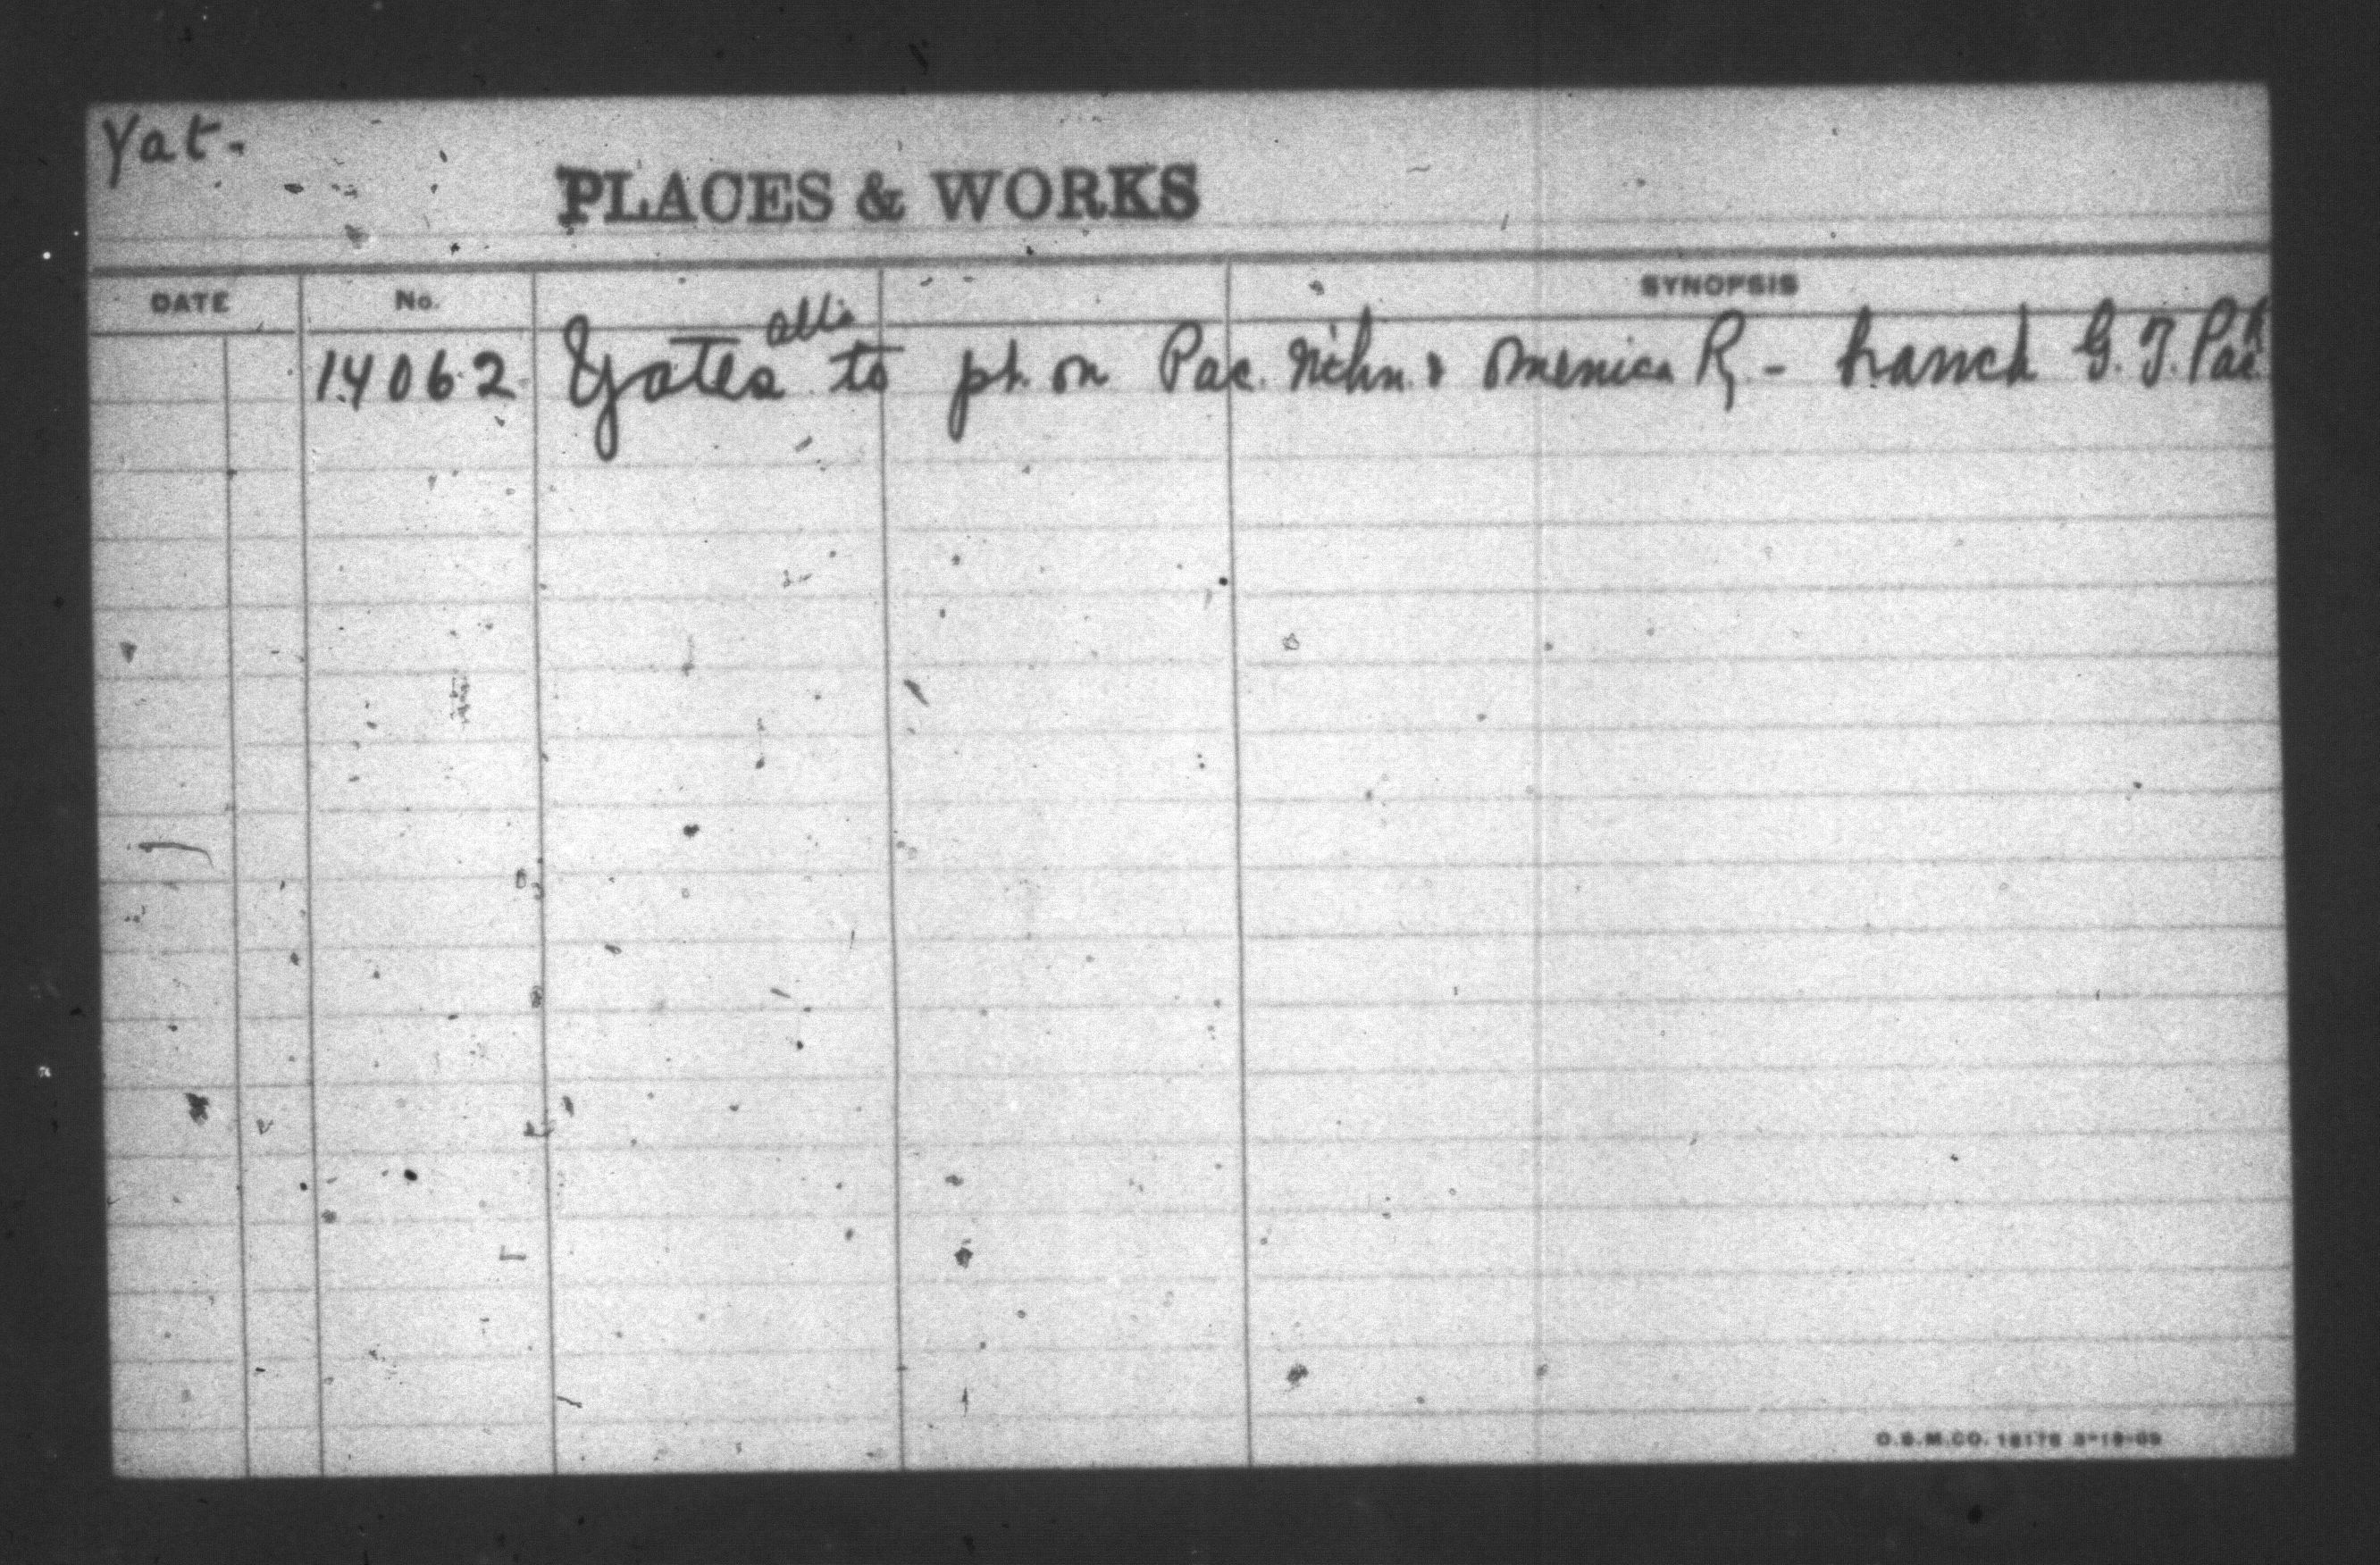 Yat-
PLACES & WORKS
DATE No. SYNOPSIS
14062 Yates Alta to pt. on Pac. Nthn. & Omenica Ry - branch G. T. Pac. R
O.S.M.CO.